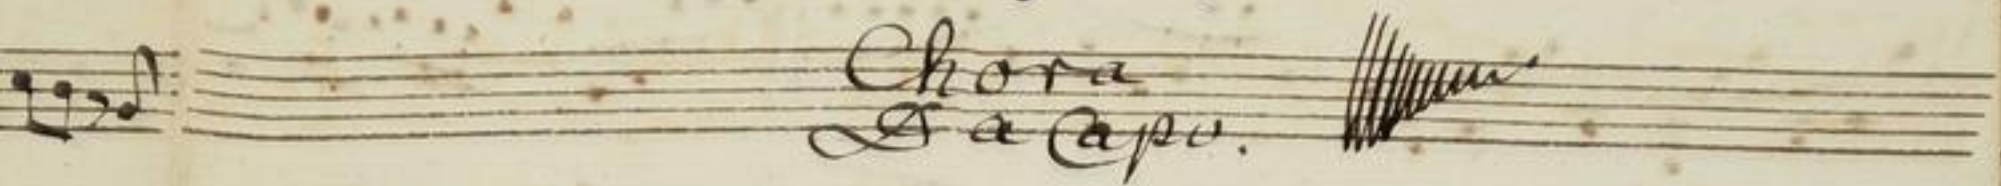 Chora
Da Capo.